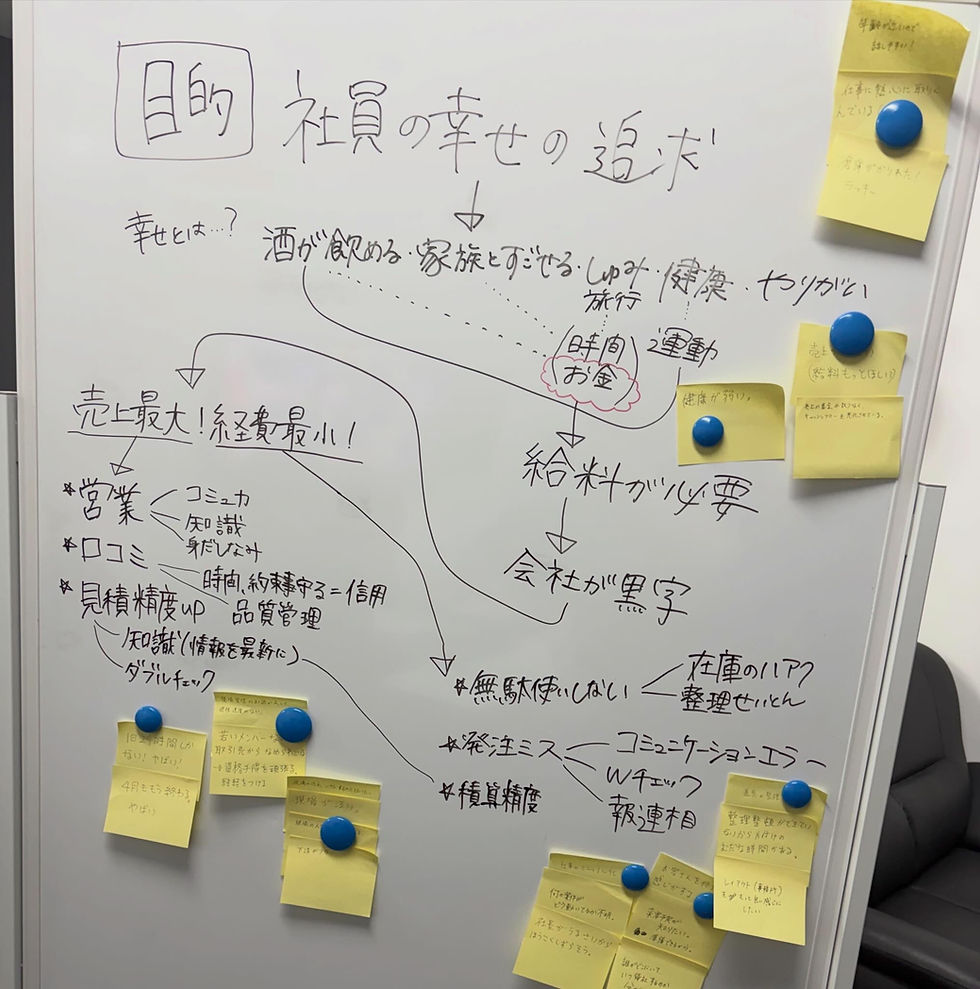 目的 社員の幸せの追求
幸せとは…?
酒が飲める・家族とすごせる・しゅみ・健康・やりがい
旅行
時間
お金
運動
給料が必要
会社が黒字
売上最大!経費最小!
*営業
コミュ力
知識
身だしなみ
*口コミ
時間、約束事守る=信用
品質管理
*見積精度up
知識(情報を最新に)
ダブルチェック
*無駄使いしない
在庫のハアク
整理せいとん
*発注ミス
コミュニケーションエラー
Wチェック
報連相
*積算精度
話しやすい!
仕事に熱心に取りく
んでいる
ラッキー
(給料もっとほしい)
健康が弱い。
1日24時間しか
ない!やばい!
4月ももう終わる。
やばい
若いメンバー
取引先から
経験をつける
現場が
何の案件が
社長が
お客さんを
感じがする
整理整頓ができてい
ないから片付けの
むだな時間がある。
レイアウト(事務所)
したい